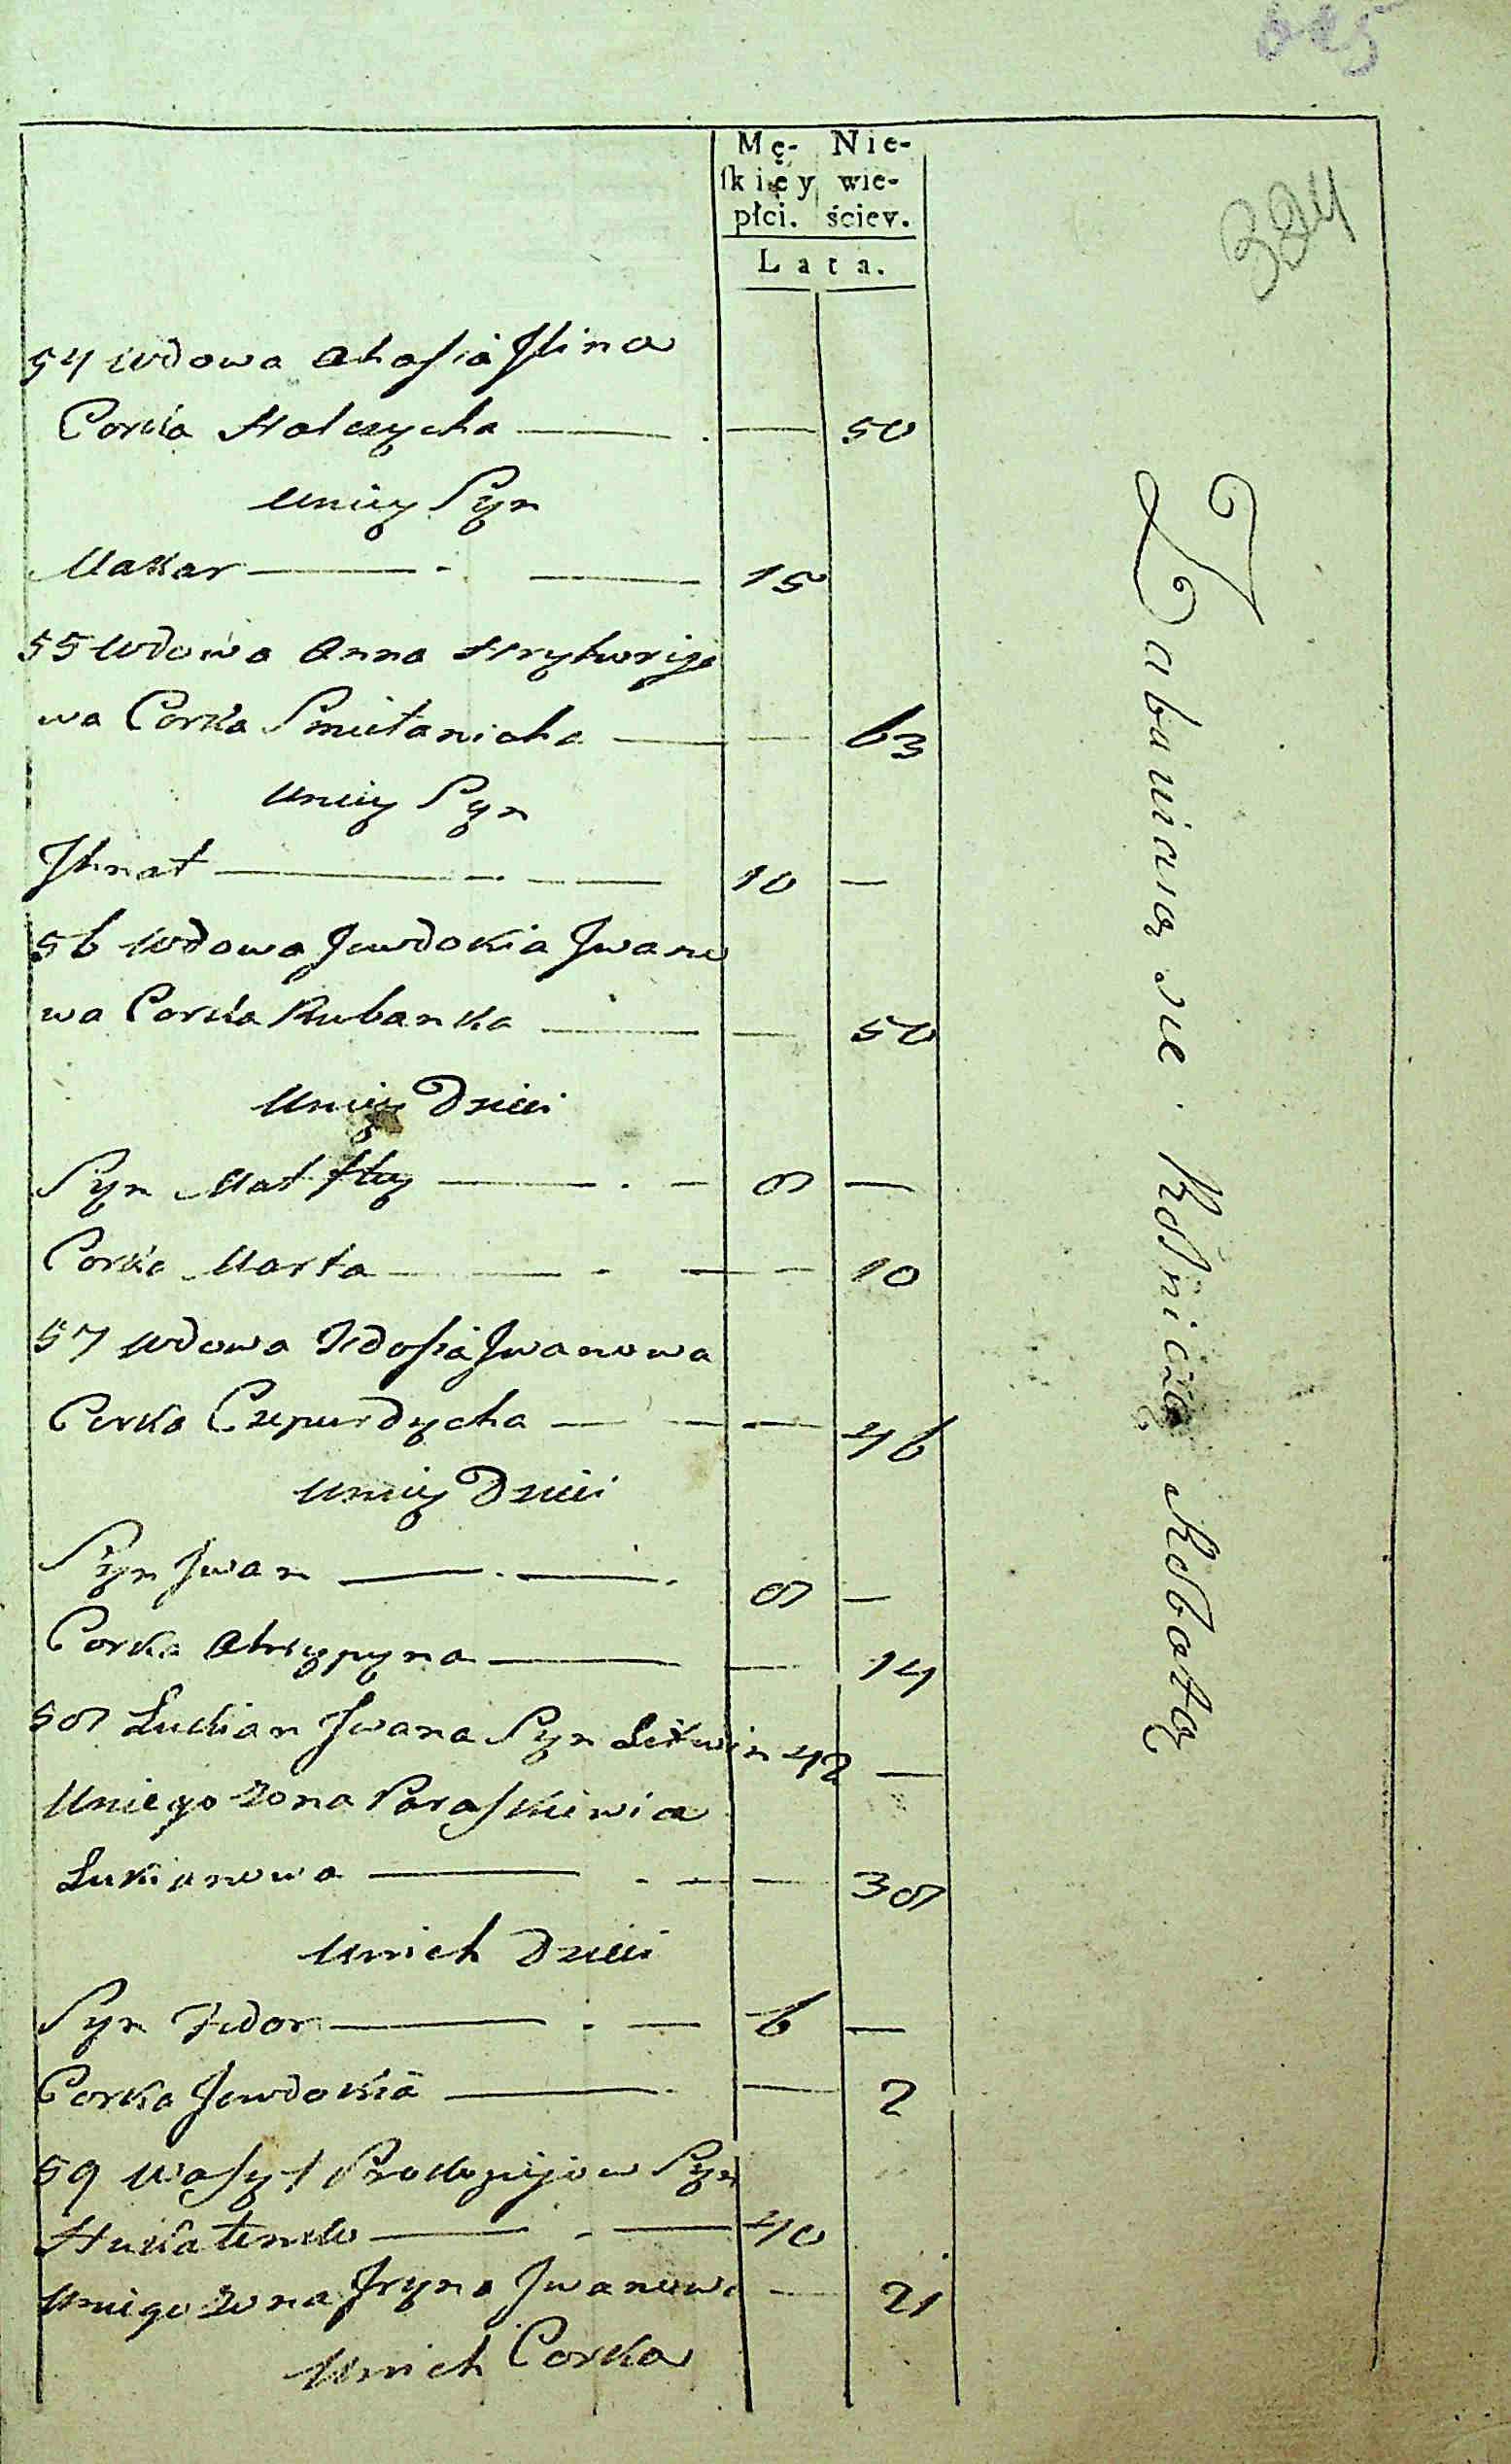 324
Mę- Nie-
ſkiey wie-
płci. ściey.
Lata.
54 Wdowa Ahafia Jlina
Corka Halczycha — — 50
Uniey Syn
Makar — — 15
55 Wdowa Anna Hryhoryjo
wa Corka Smietanicha — — 63
Uniey Syn
Jhnat — — 10 —
56 Wdowa Jewdokia Jwano
wa Corka Rubanka — — 50
Uniey Dzieci
Syn Matfiy — — 8 —
Corka Marta — — — 10
57 Wdowa Fedosia Jwanowa
Corka Czepurdycha — — — 46
Uniey Dzieci
Syn Jwan — — 8 —
Corka Ahrypyna — — 14
58 Lukian Jwana Syn Litwin 42 —
Uniego Zona Paraskiewia
Lukianowa — — — 38
Unich Dzieci
Syn Fedor — — 6 —
Corka Jewdokia — — 2
59 Wasyl Prokopijow Syn
— — 40
Uniego Zona Jryna Jwanowa — 21
Unich Corka
Zabawiaią sie Rolniczą Robotą